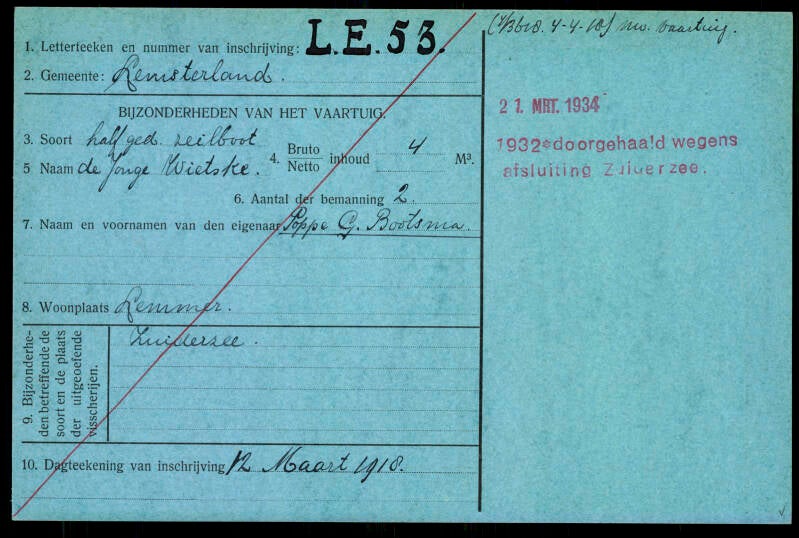 1. Letterteeken en nummer van inschrijving: L.E.53.
2. Gemeente: Lemsterland.
BIJZONDERHEDEN VAN HET VAARTUIG.
3. Soort half ged. zeilboot
4. Bruto
Netto inhoud 4 M³.
5 Naam de Jonge Wietske.
6. Aantal der bemanning 2.
7. Naam en voornamen van den eigenaar Poppe G. Bootsma.
8. Woonplaats Lemmer.
9. Bijzonderhe-
den betreffende de
soort en de plaats
der uitgeoefende
visscherijen.
Zuiderzee.
10. Dagteekening van inschrijving 12 Maart 1918.
4-4-18) nw. vaartuig.
21. MRT. 1934
1932 doorgehaald wegens
afsluiting Zuiderzee.